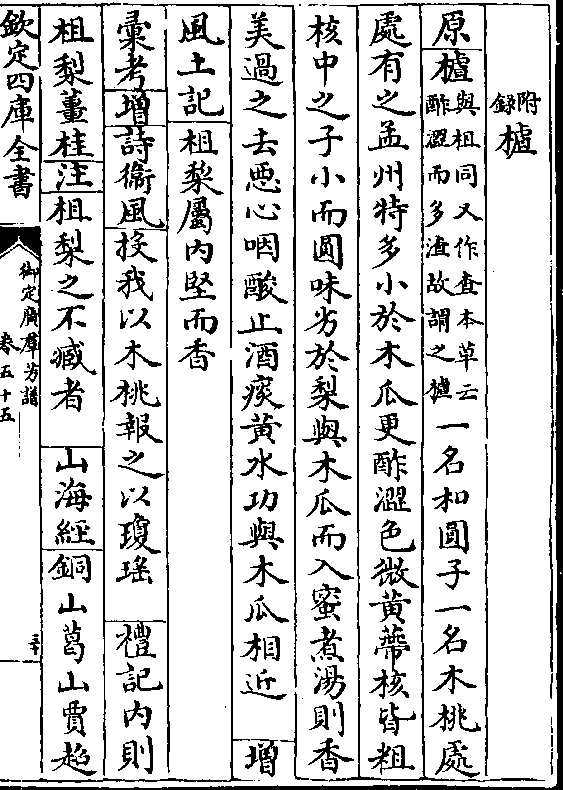 附錄樝
原樝與柤同又作查本草云酢澀而多渣故謂之樝一名和圓子一名木桃處
處有之孟州特多小於木瓜更酢澀色微黃蔕核皆粗
核中之子小而圓味劣於梨與木瓜而入蜜煮湯則香
美過之去惡心咽酸止酒痰黃水功與木瓜相近 增
風土記柤棃屬內堅而香
彙考增詩衞風投我以木桃報之以瓊瑤 禮記內則
柤棃薑桂注柤梨之不臧者 山海經銅山葛山賈超
欽定四庫全書
御定廣羣芳譜
卷五十五
三十